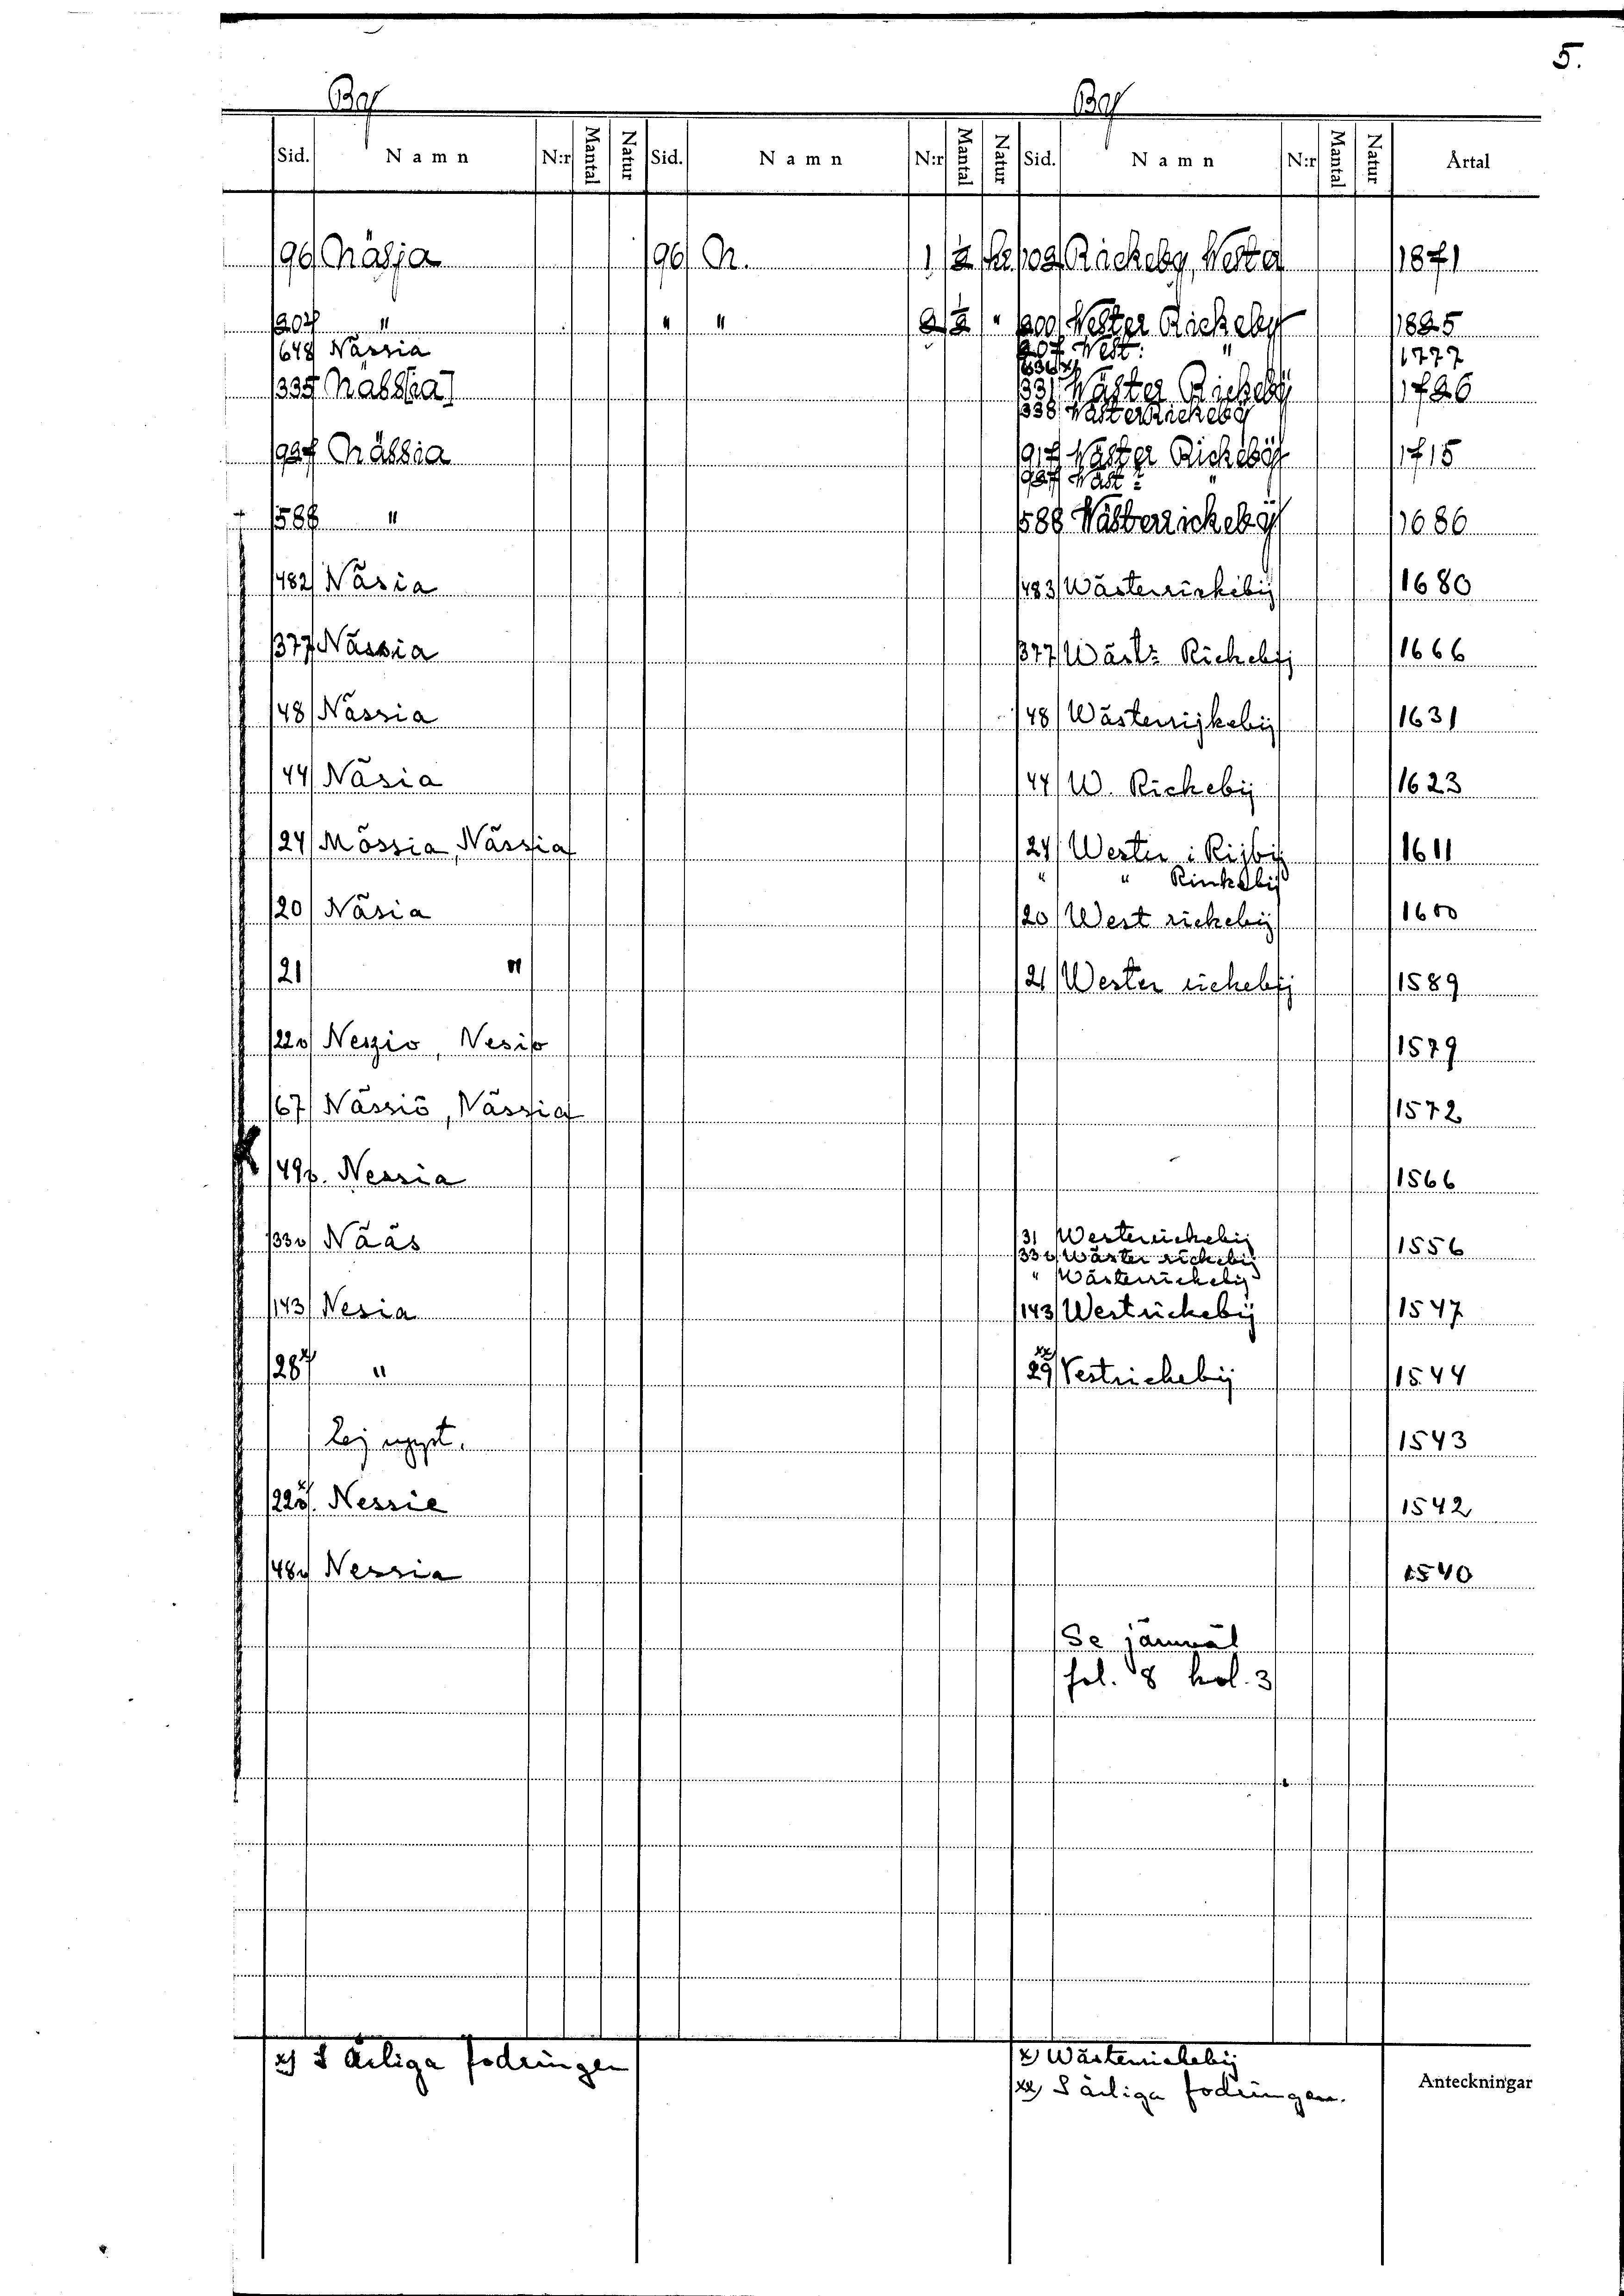 5.
By By
Sid. Namn N:r Mantal Natur Sid. Namn N:r Mantal Natur Sid. Namn N:r Mantal Natur Årtal
96 Näsja 96 N. 1 ½ Kr. 102 Rickeby, Westa 1871
202 " " " 2 ½ " 200 Wester Rickeby 1825
648 Nässia 207 West: " 1777
636 x)
335 Näss[ia] 331 Wäster Rickebÿ 1726
338 Wästerrickeby
927 Nässia 917 Wäster Rickebÿ 1715
927 Wäst: "
+ 588 " 588 Wästerrickebÿ 1686
482 Näsia 483 Wästerrickebÿ 1680
377 Nässia 377 Wäst: Rickebÿ 1666
48 Nässia 48 Wästerrijkebÿ 1631
44 Näsia 44 W. Rickebÿ 1623
24 Mössia, Nässia 24 Wester i Rijbÿ 1611
" " Rinkebÿ
20 Näsia 20 West rickebÿ 1600
21 " 21 Wester rickebÿ 1589
22v Neszio, Nesio 1579
67 Nässiö, Nässia 1572
49v. Nessia 1566
33v Nääs 31 Westerrickebÿ 1556
33v Wäster rickebÿ
" Wästerrickebÿ
143 Nesia 143 Westrickebÿ 1547
28 x) " 29 xx) Vestrickebÿ 1544
Ej uppt. 1543
225 x). Nessie 1542
48v Nessia 1540
Se jämväl
fol. 8 kol. 3
x) I Årliga fodringen x) Wästerrickebÿ
xx) I årliga fodringen. Anteckningar